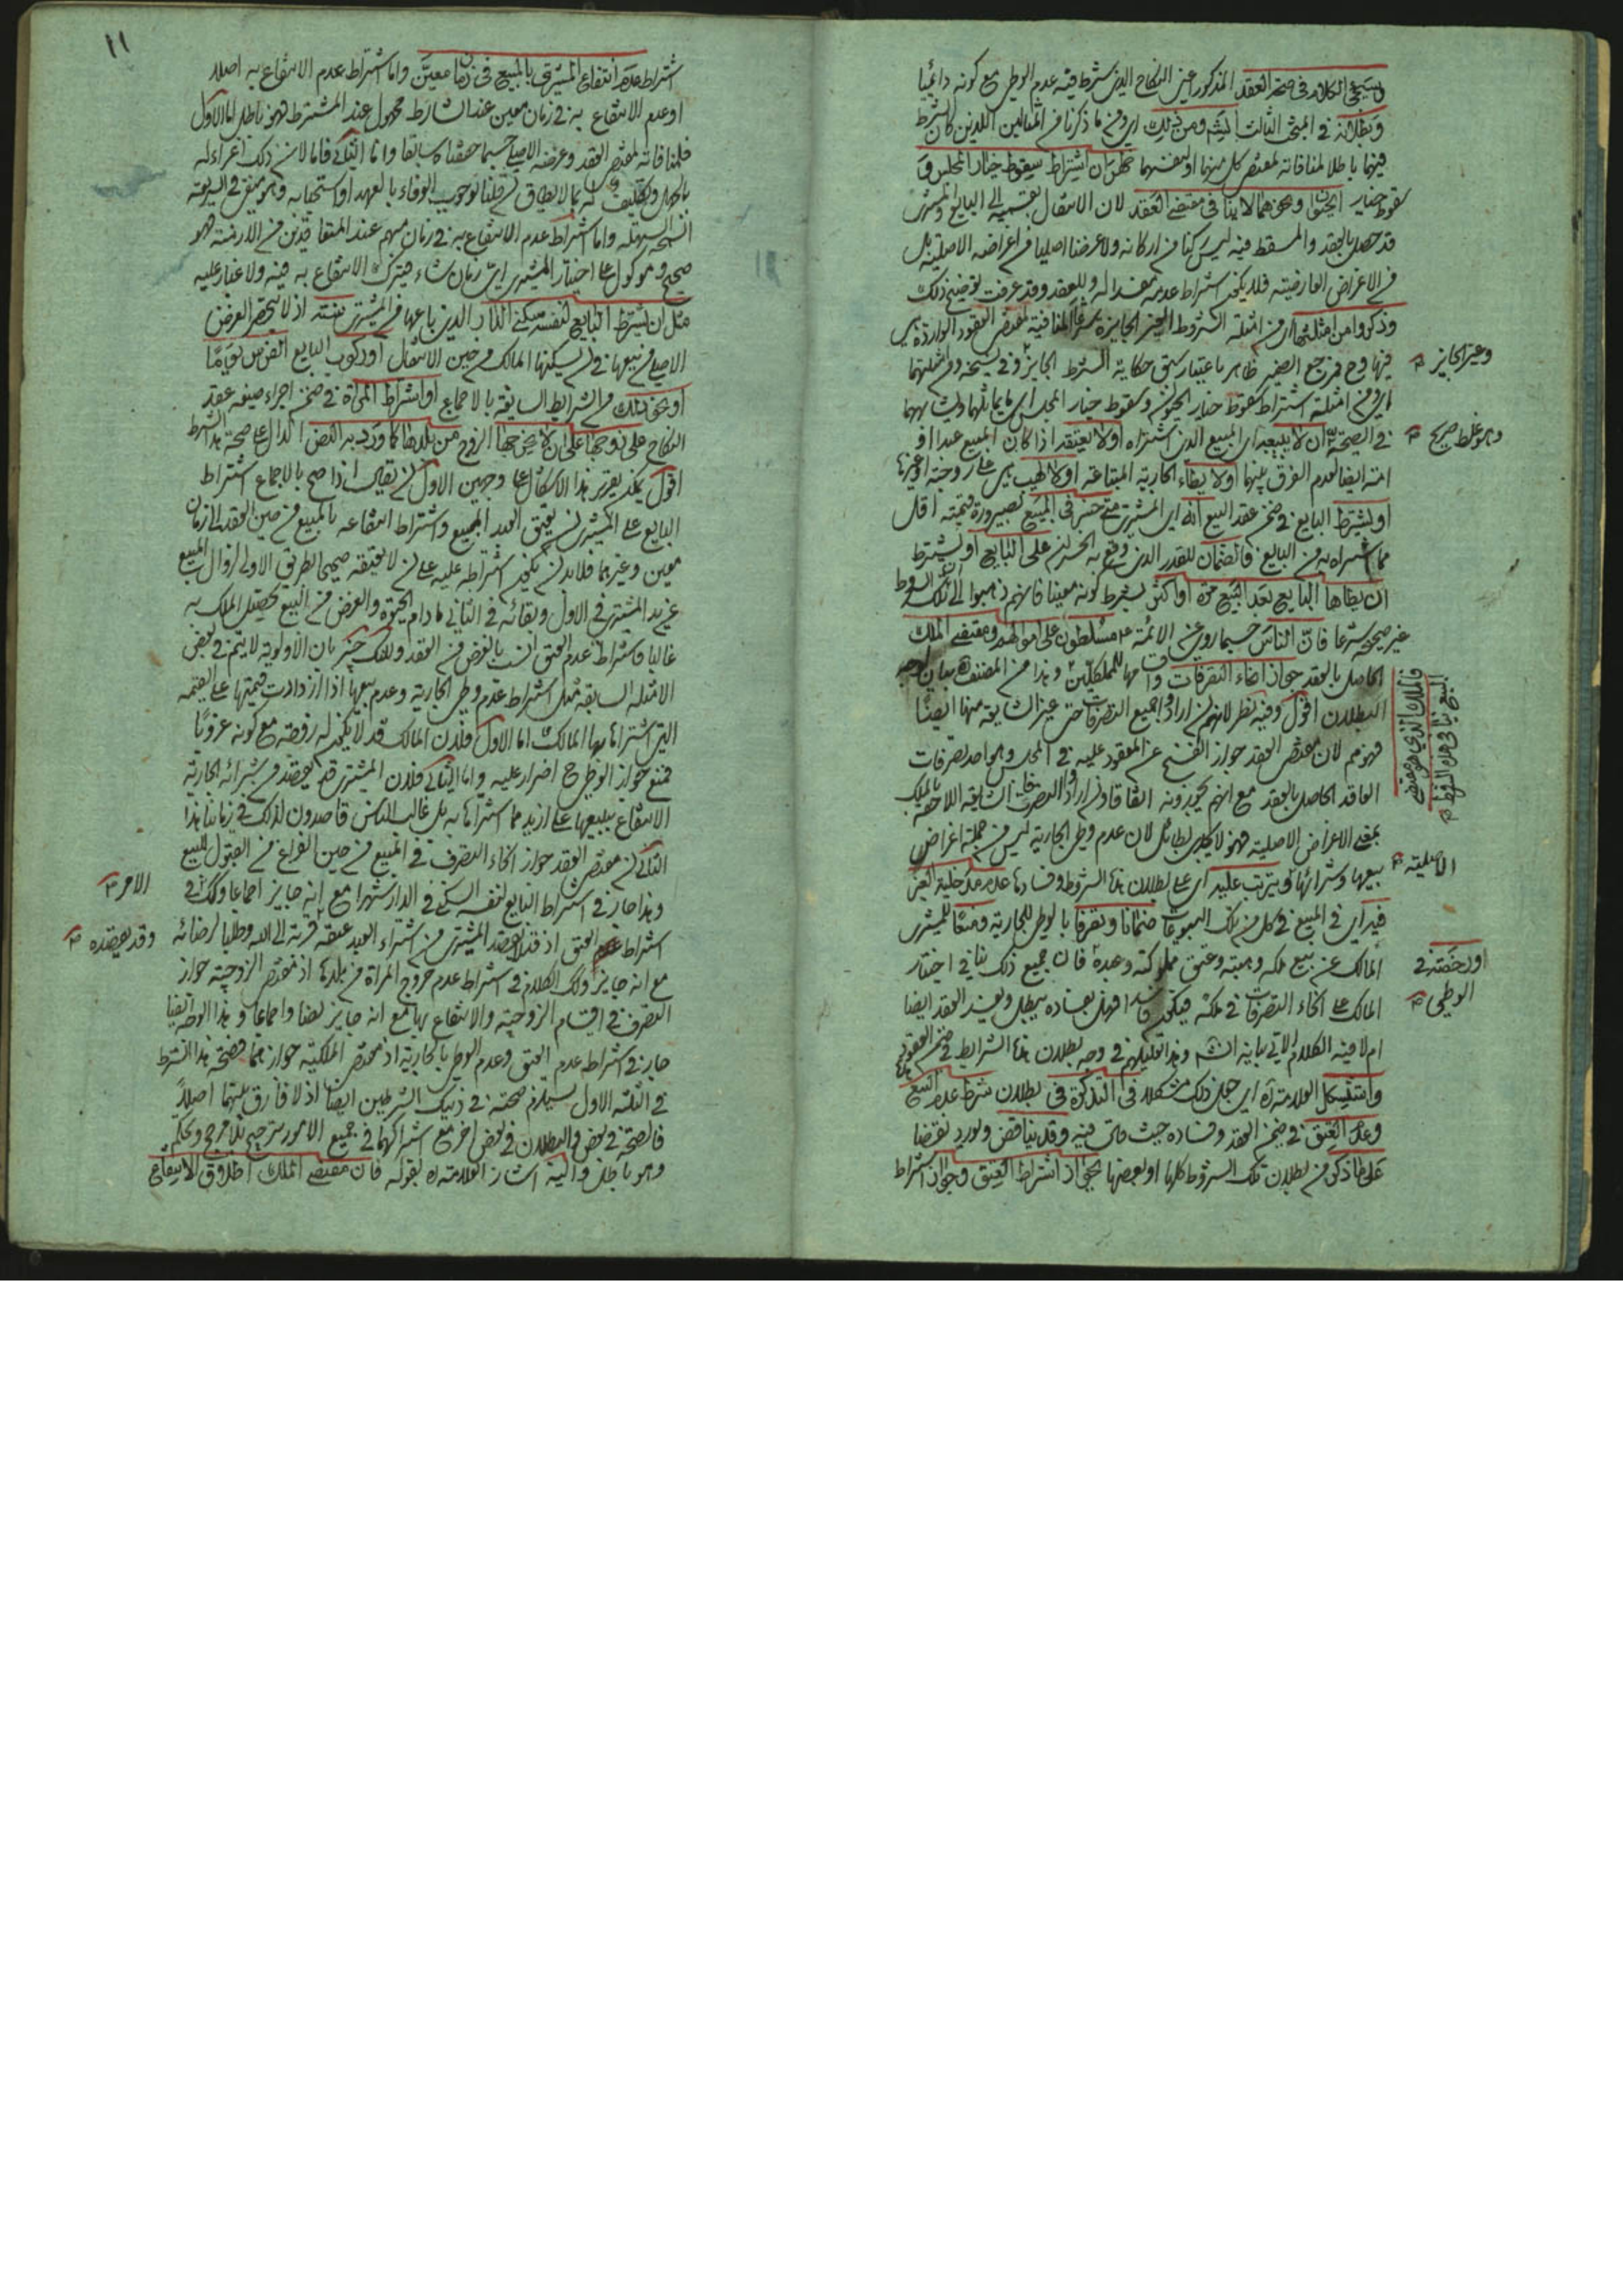 وسيجئ الكلام في صحة العقد المذكور اعني النكاح الذي شرط فيه عدم الوطي مع كونه دائميا
وبطلانه في المبحث الثالث ومن ذلك اي ومن ما ذكرنا من المثالين اللذين كان الشرط
فيهما باطلا لمنافاته لمقتضى كل منهما او لبعضهما ظهر ان اشتراط سقوط خيار المجلس و
سقوط خيار الحيوان ونحوهما لا ينافي مقتضى العقد لان الانتقال بقسميه الى البايع والمشتري
قد حصل بالعقد والمسقط فيه ليس ركنا من اركانه ولا غرضا اصليا من اغراضه الاصلية بل
من الاغراض العارضية فلا يكون اشتراط عدمه مفسدا له وللعقد وقد عرفت توضيح ذلك
وذكروا من امثلتها اي من امثلة الشروط الغير الجايزة شرعا المنافية لمقتضى العقود الواردة هي
فيها وح فمرجع الضمير ظاهر باعتبار سبق حكاية الشرط الجايز وفي نسخة ومن امثلتهما
اي ومن امثلة اشتراط سقوط خيار الحيوان وسقوط خيار المجلس اي ما يماثلهما ويشابههما
في الصحة ان لا يبيعه اي المبيع الذي اشتراه او لا يعتقه اذا كان المبيع عبدا او
امة ايضا لعدم الفرق بينهما او لا يطاء الجارية المبتاعة او لا يهب هي
او يشترط البايع في ضمن عقد البيع انه اي المشتري متى خسر في المبيع لصيرورة قيمته اقل
مما اشتراه به من البايع فالضمان للقدر الذي وقع به الخسران على البايع او يشترط
ان يطاها البايع بعد البيع مرة او اكثر بشرط كونه معينا فانهم ذهبوا الى تلك الشروط
غير صحيحة شرعا فان الناس حسبما روي عن الائمة ع مسلطون على اموالهم ومقتضى الملك
الحاصل بالعقد جواز امضاء التصرفات واقسامها للمكلفين وهذا من المصنف بيان لوجه
البطلان اقول وفيه نظر لانهم ان ارادوا جميع التصرفات حتى غير السابقة منها ايضا
فهو مم لان مقتضى العقد جواز الفسخ عن المعقود عليه في المجلس وهو احد تصرفات
العاقد الحاصل بالعقد مع انهم يجوزونه اتفاقا وان ارادوا التصرفات السابقة اللاحقة بالملك
بمعنى الاغراض الاصلية فهو لا يكون بطائل لان عدم وطي الجارية ليس من جملة اغراض
بيعها وشرائها ويترتب عليه اي على بطلان هذه الشروط وفسادها عدم مدخلية الغير
فيه اي في المبيع في كل من تلك المبيوعات ضمانا وتصرفا بالوطي للجارية ومنعا للمشتري
المالك عن بيع ملكه وهبته وعتق مملوكته وعبده فان جميع ذلك ينافي اختيار
المالك على انحاء التصرفات في ملكه فيكون فاسدا وهل بفساده يبطل ويفسد العقد ايضا
ام لا فيه الكلام الاتي بيانه انش وهذا تعليلهم في وجه بطلان هذه الشرايط في ضمن العقود
واستشكل العلامة ره اي جعل ذلك مشكلا في التذكرة في بطلان شرط عدم البيع
وعدم العتق في ضمن العقد وفساده حيث قال فيه وقد يناقض ويورد نقضا
على ما ذكر من بطلان تلك الشروط كلها او بعضها بجواز اشتراط العتق وجواز اشتراط
وغير الجايز
وهو غلط صريح
فالملك الذي هو مقتضى
البيع ينافي هذه الشروط
الاصلية
او رخصته في
الوطي
١١
اشتراط عدم انتفاع المشتري بالمبيع في زمان معين واما اشتراط عدم الانتفاع به اصلا
او عدم الانتفاع به في زمان معين عند الشارط مجهول عند المشترط فهو باطل اما الاول
فلمنافاته لمقتضى العقد وغرضه الاصلي حسبما حققناه سابقا واما الثاني فاما لان ذلك اغراء له
بالجهل وتكليف له بما لا يطاق ان قلنا بوجوب الوفاء بالعهد او استحبابه وهو منفي في الشريعة
السمحة السهلة واما اشتراط عدم الانتفاع به في زمان مبهم عند المتعاقدين من الازمنة فهو
صحيح وموكول على اختيار المشتري اي زمان شاء فيترك الانتفاع به فيه ولا غبار عليه
مثل ان يشترط البايع لنفسه سكنى الدار الذي باعها من المشتري سنة اذ لا ينحصر الغرض
الاصلي من بيعها في ان يسكنها المالك من حين الانتقال او ركوب البايع الفرس يوما
او نحو ذلك من الشرايط السابقة بالاجماع او اشتراط المرأة في ضمن اجراء صيغة عقد
النكاح على زوجها على ان لا يخرجها الزوج من بلدها كما ورد به النص الدال على صحة هذا الشرط
اقول يمكن تقرير هذا الاشكال على وجهين الاول ان يقال اذا صح بالاجماع اشتراط
البايع على المشتري ان يعتق العبد المبيع واشتراط انتفاعه بالمبيع من حين العقد الى زمان
معين وغيرهما فلا بد ان يكون اشتراطه عليه على ان لا يعتقه صحيحا بطريق الاولى لزوال المبيع
عن يد المشتري في الاول وبقائه في الثاني ما دام الحيوة والغرض من البيع تحصيل الملك به
غالبا واشتراط عدم العتق انسب بالغرض من العقد ولكنك خبير بان الاولوية لا يتم في بعض
الامثلة السابقة مثل اشتراط عدم وطي الجارية وعدم بيعها اذا ازدادت قيمتها على القيمة
التي اشتراها بها المالك اما الاول فلان المالك قد لا يكون له زوجة مع كونه عزوبا
فمنع جواز الوطي ح اضرار عليه واما الثاني فلان المشتري قد يقصد من شرائه الجارية
الانتفاع ببيعها على ازيد مما اشتراها به بل غالب الناس قاصدون لذلك في زماننا هذا
الثاني ان مقتضى العقد جواز انحاء التصرف في المبيع من حين الفراغ من القبول للبيع
وهذا جار في اشتراط البايع لنفسه السكنى في الدار شهرا مع انه جايز اجماعا وكك في
اشتراط العتق اذ قد يقصد المشتري من اشتراء العبد عتقه قربة الى الله وطلبا لرضائه
مع انه جايز وكك الكلام في اشتراط عدم خروج المراة من بلدها اذ مقتضى الزوجية جواز
التصرف في اقسام الزوجية والانتفاع بها مع انه جايز نصا واجماعا وهذا الوجه ايضا
جار في اشتراط عدم العتق وعدم الوطي بالجارية اذ مقتضى الملكية جوازهما فصحة هذا الشرط
في الثلثة الاول يستلزم صحته في ذينك الشرطين ايضا اذ لا فارق بينهما اصلا
فالصحة في بعض والبطلان في بعض اخر مع اشتراكهما في جميع الامور ترجيح بلا مرجح وتحكم
وهو باطل واليه اشار العلامة ره بقوله فان مقتضى الملك اطلاق الانتفاع
الامر
وقد يقصده